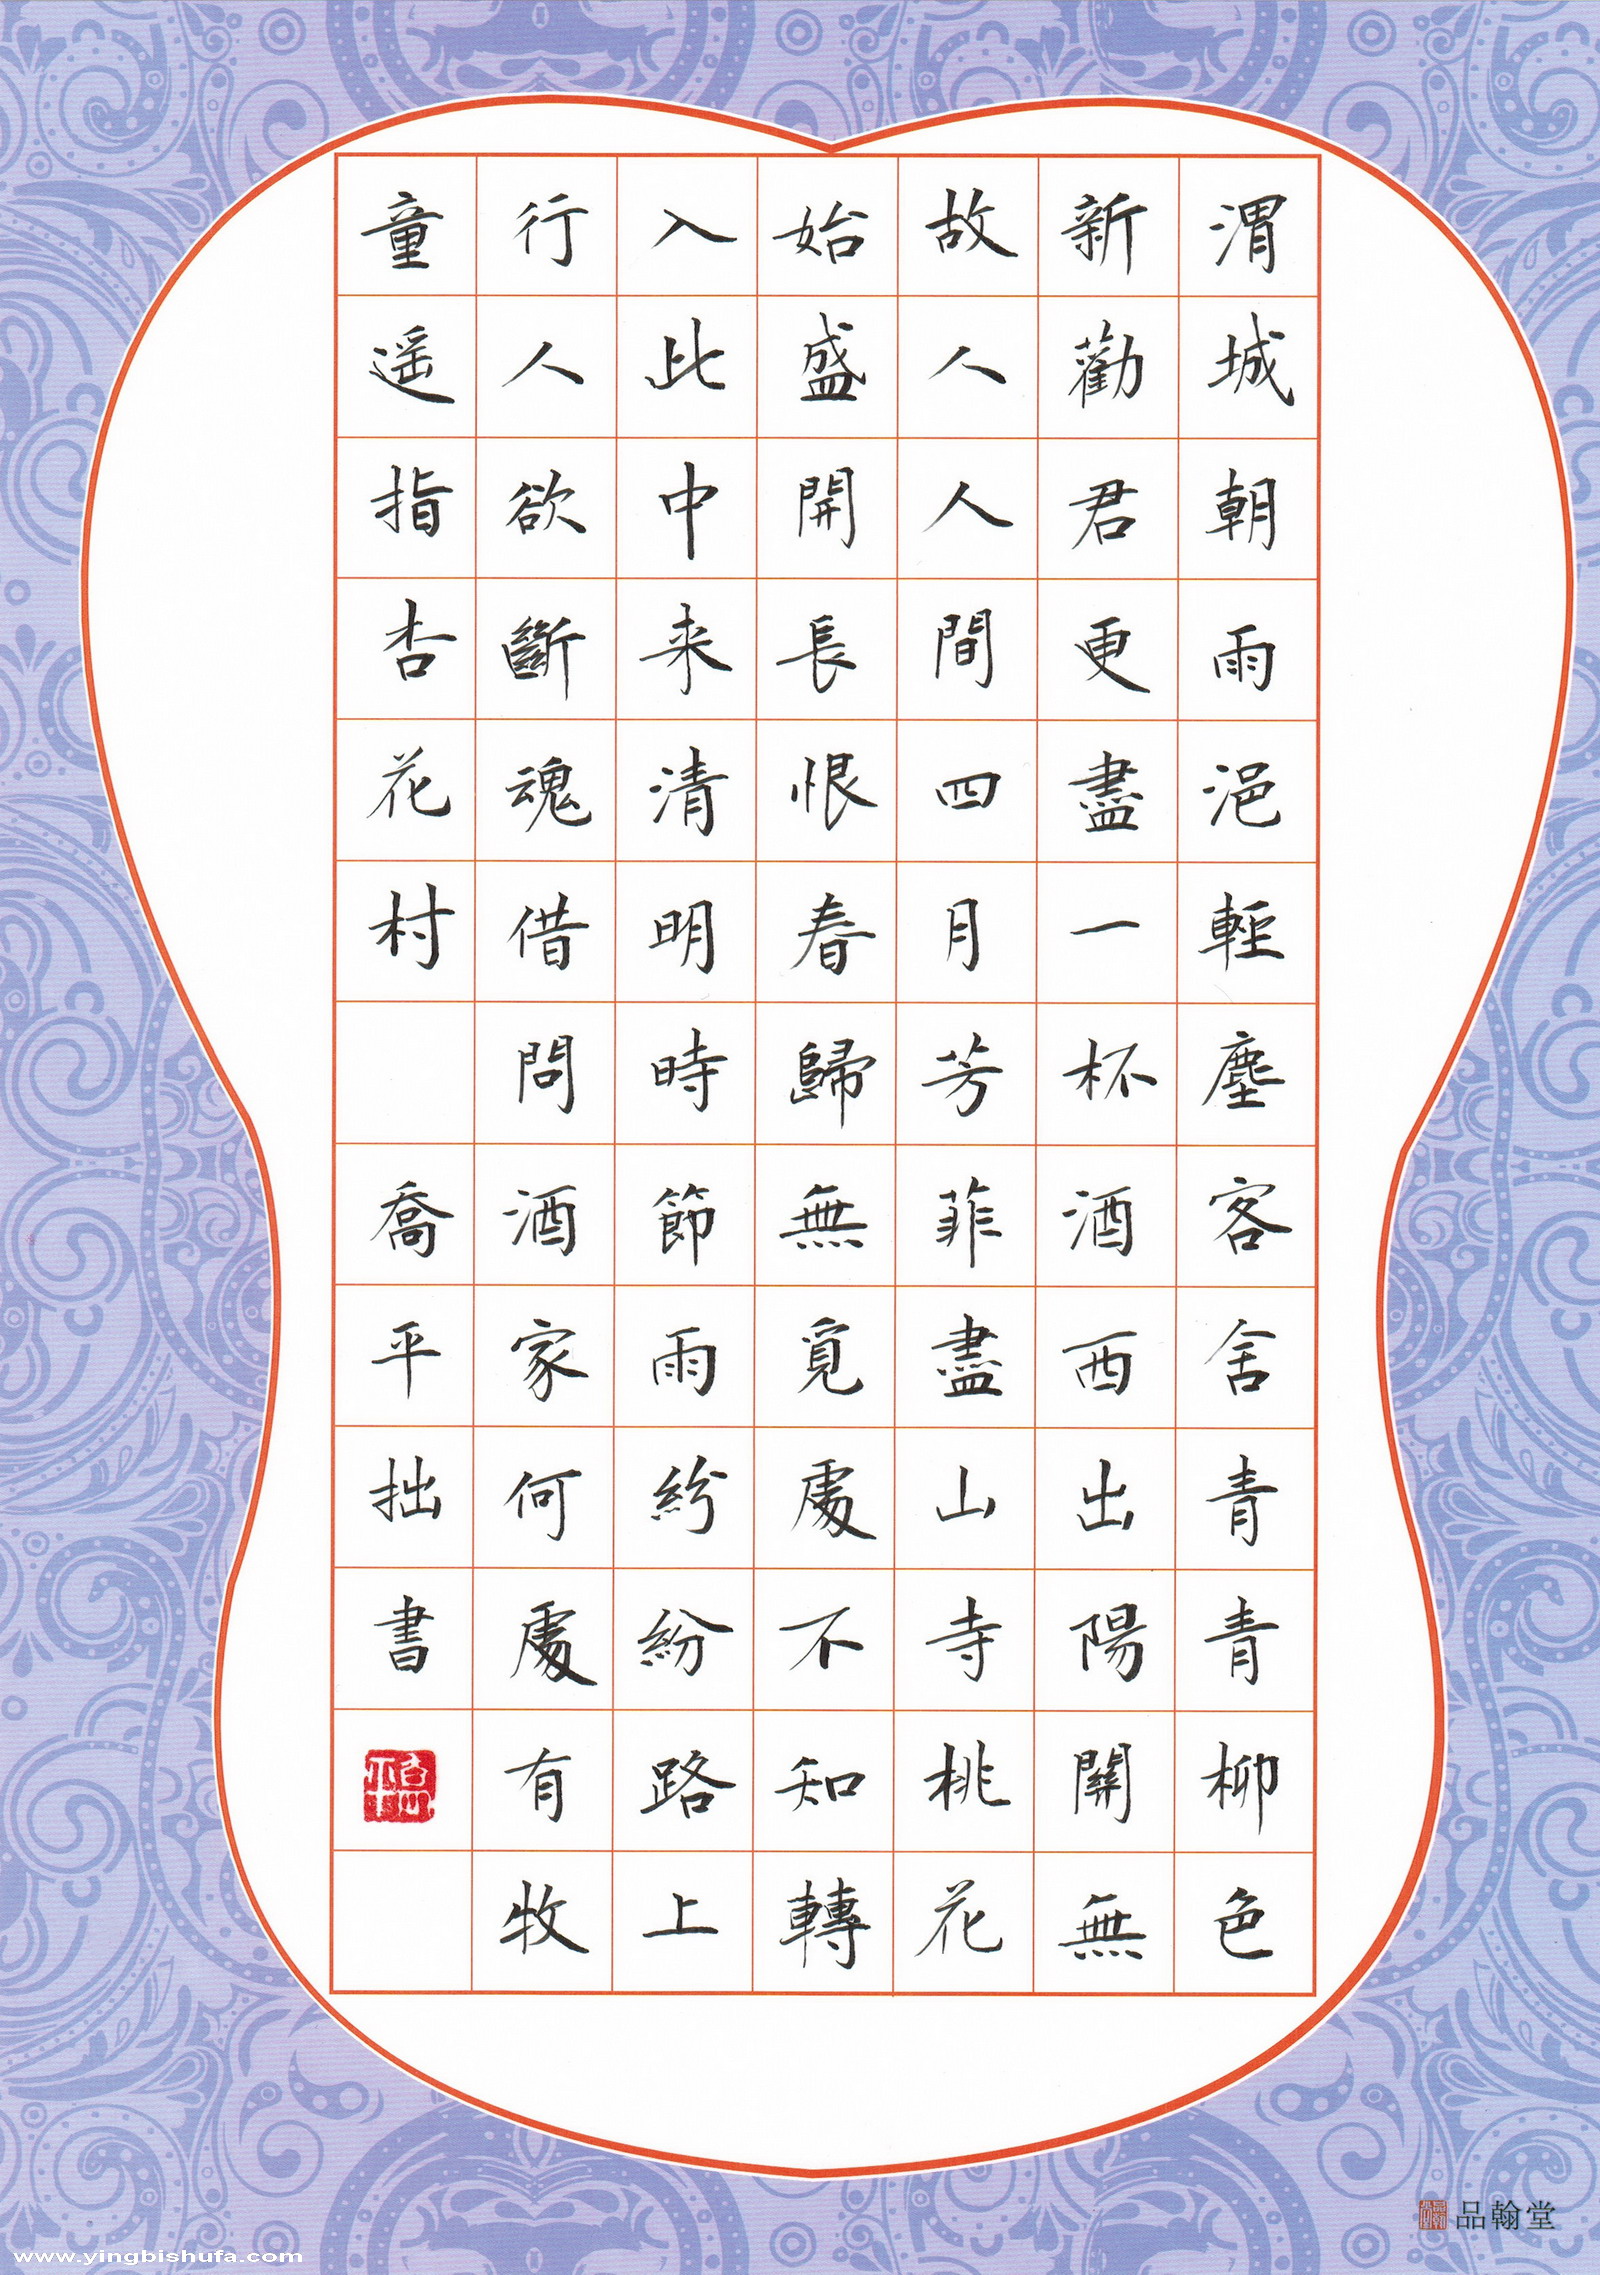 渭城朝雨浥輕塵客舍青青柳色
新勸君更盡一杯酒西出陽關無
故人人間四月芳菲盡山寺桃花
始盛開長恨春歸無覓處不知轉
入此中来清明時節雨紛紛路上
行人欲斷魂借問酒家何處有牧
童遥指杏花村
喬平拙書
品翰堂
www.yingbishufa.com